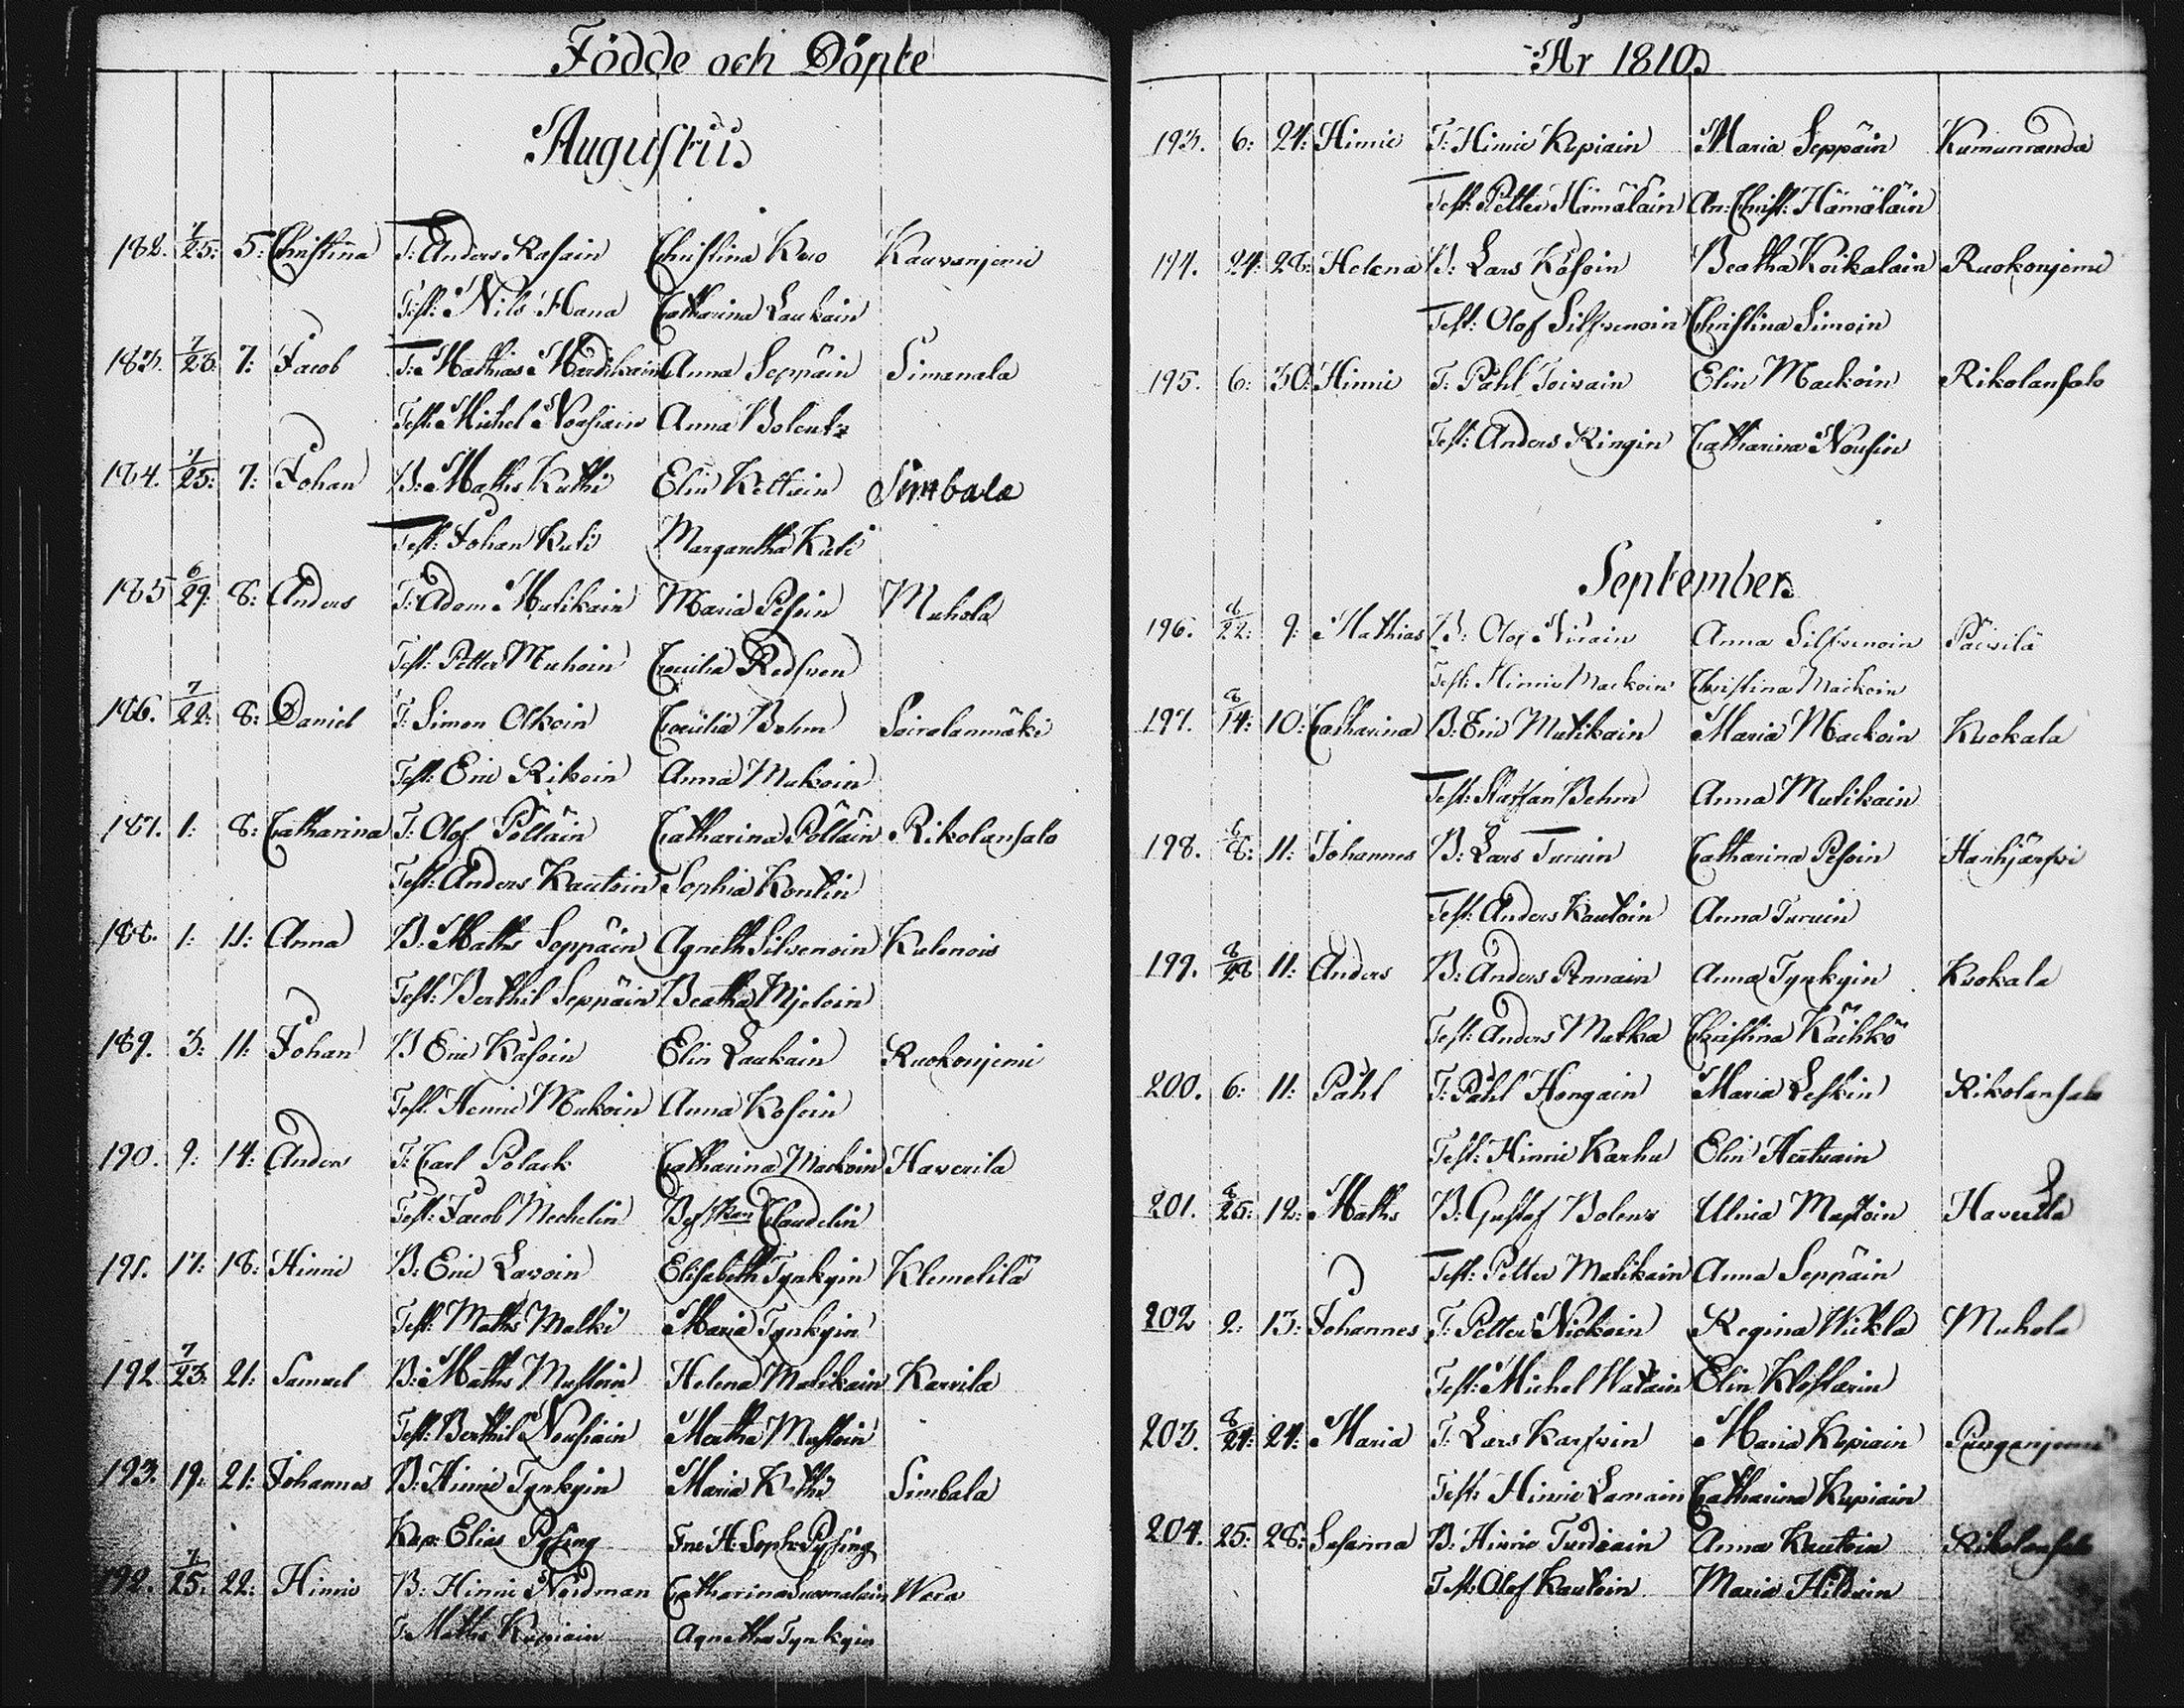 Födde och Döpte
Augustus
182. 7/25: 5: Christina T: Anders Rasain Christina Kro Kauvanjemi
Test: Nils Hana Catharina Laukain
183. 7/28 7: Jacob T: Mathias Mardikain Anna Seppäin Simanala
Test: Michel Nousiain Anna Bolentz
184. 7/25: 7: Johan B: Maths Kuthi Elin Kettuin Simbala
Test: Johan Kuli Margaretha Kuli
185 6/29: 8: Anders T: Adam Mulikain Maria Pesoin Muhola
Test: Petter Muhoin Coecilia Redsven
186. 7/22: 8: Daniel T: Simon Olkoin Coecilia Behm Soiralanmäki
Test: Eric Rikoin Anna Mukoin
187. 1: 8: Catharina T: Olof Pölläin Catharina Pölläin Rikolansalo
Test: Anders Kautoin Sophia Kontin
188. 1: 11: Anna B: Maths Seppäin Agneth Silvenoin Kulenois
Test: Berthil Seppäin Beatha Mjeloin
189. 3: 11: Johan B Eric Käsoin Elin Laukain Ruokonjemi
Test: Henric Mukoin Anna Kosoin
190. 9: 14: Anders T: Carl Polack Catharina Mackoin Haverila
Test: Jacob Mechelin Bef:skan Claudelin
191. 17: 18: Hinric B: Eric Lavoin Elisabeth Tynkyin Klemelilä
Test: Maths Malki Maria Tynkyin
192 7/23: 21: Samuel B: Maths Mustoin Helena Malikain Karvila
Test: Berthil Nousiain Mertha Mustoin
193. 19: 21: Johannes B: Hinric Tynkyin Maria Simbala
Kap: Elias Pysing Fru H: Soph: Pysing
192. 7/25: 22: Hinric B: Hinric Nordman Catharina Surmalain Wara
T: Maths Kupiain Agnetha Tynkyin
År 1810.
193. 6: 24: Hinric T: Hinric Kopiain Maria Seppäin Kumunranda
Test: Petter Hämäläin An: Christ: Hämäläin
194. 24: 28: Helena B: Lars Käsoin Beatha Koikalain Ruokonjemi
Test: Olof Silfvenoin Christina Simoin
195. 6: 30: Hinric T: Påhl Toivain Elin Mackoin Rikolansalo
Test: Anders Ringin Catharina Nousin
September
196. 8/22: 9: Mathias B: Olof Nirain Anna Silfvenoin Päivilä
Test: Hinric Mackoin Christina Mackoin
197. 8/14: 10: Catharina B: Eric Mulikain Maria Mackoin Kuokala
Test: Staffan Behm Anna Mulikain
198. 8: 11: Johannes B: Lars Turuin Catharina Pesoin Hanhijärfvi
Test: Anders Kautoin Anna Turuin
199. 8/28 11: Anders B: Anders Pennain Anna Tynkyin Kuokala
Test: Anders Matka Christina Käihkö
200. 6: 11: Påhl T: Påhl Hongain Maria Leskin Rikolansalo
Test: Hinric Karhu Elin Hertuain
201. 8/25: 12: Maths B: Gustaf Bolenz Ulrica Mustoin Haverila
Test: Petter Malikain Anna Seppäin
202 2: 13: Johannes T: Petter Nickoin Regina Wickla Muhola
Test: Michel Watain Elin Klostarin
203. 8/24: 24: Maria T: Lars Karfvin Maria Kopiain Purganjemi
Test: Hinric Lamain Catharina Kupiain
204. 25: 28: Susanna B: Hinric Turdiain Anna Kautoin Rikolansalo
Test: Olof Kautoin Maria Hiltuin